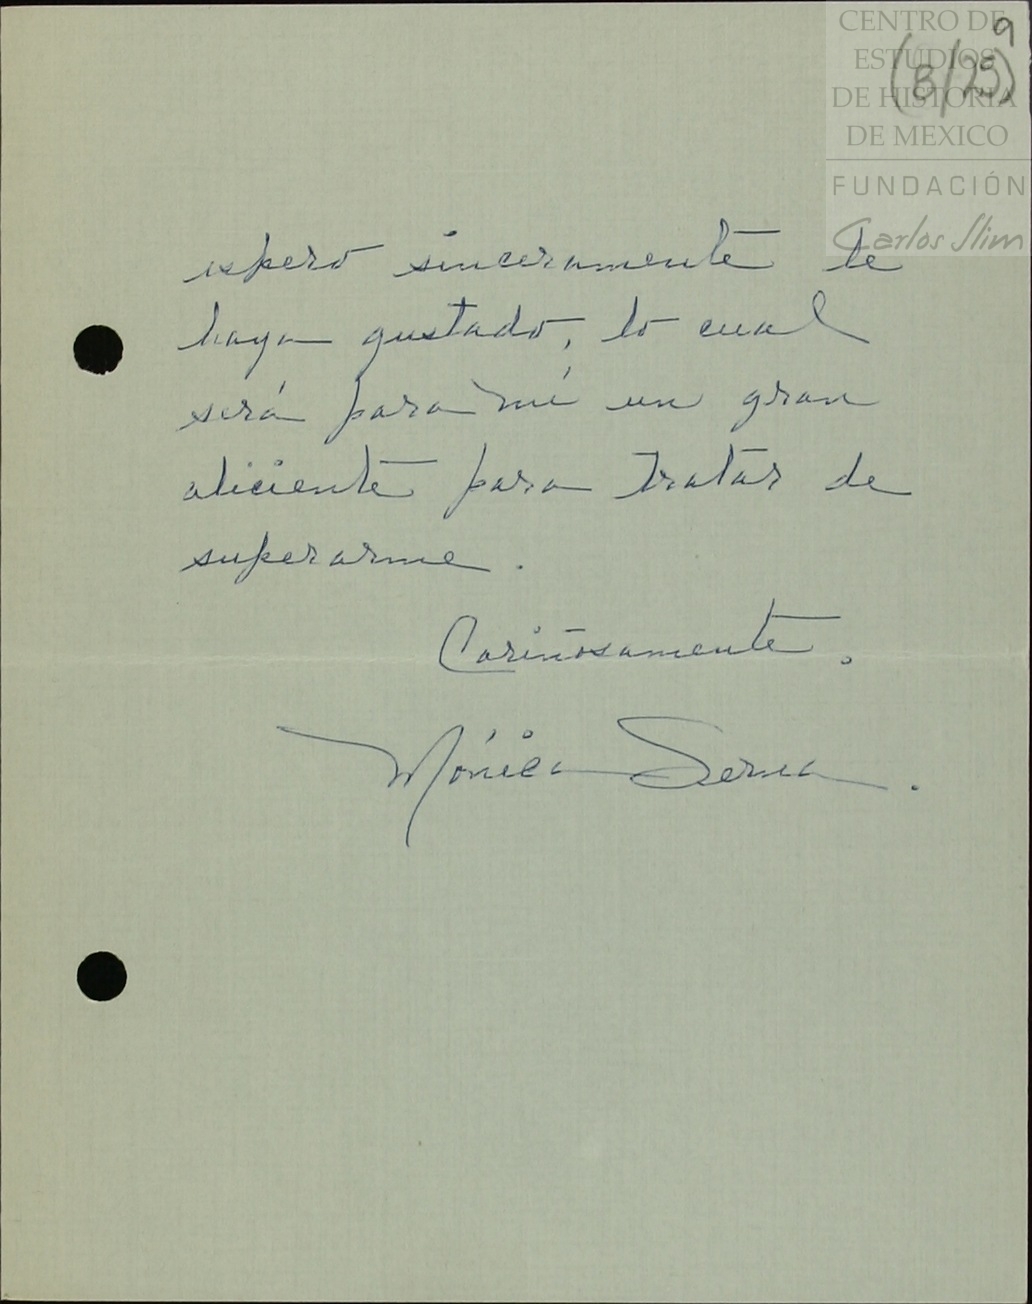 CENTRO DE
ESTUDIOS
DE HISTORIA
DE MEXICO
FUNDACIÓN
Carlos Slim
9
(B/25)
espero sinceramente le
haya gustado, lo cual
será para mí un gran
aliciente para tratar de
superarme.
Cariñosamente.
Mónica Serna.